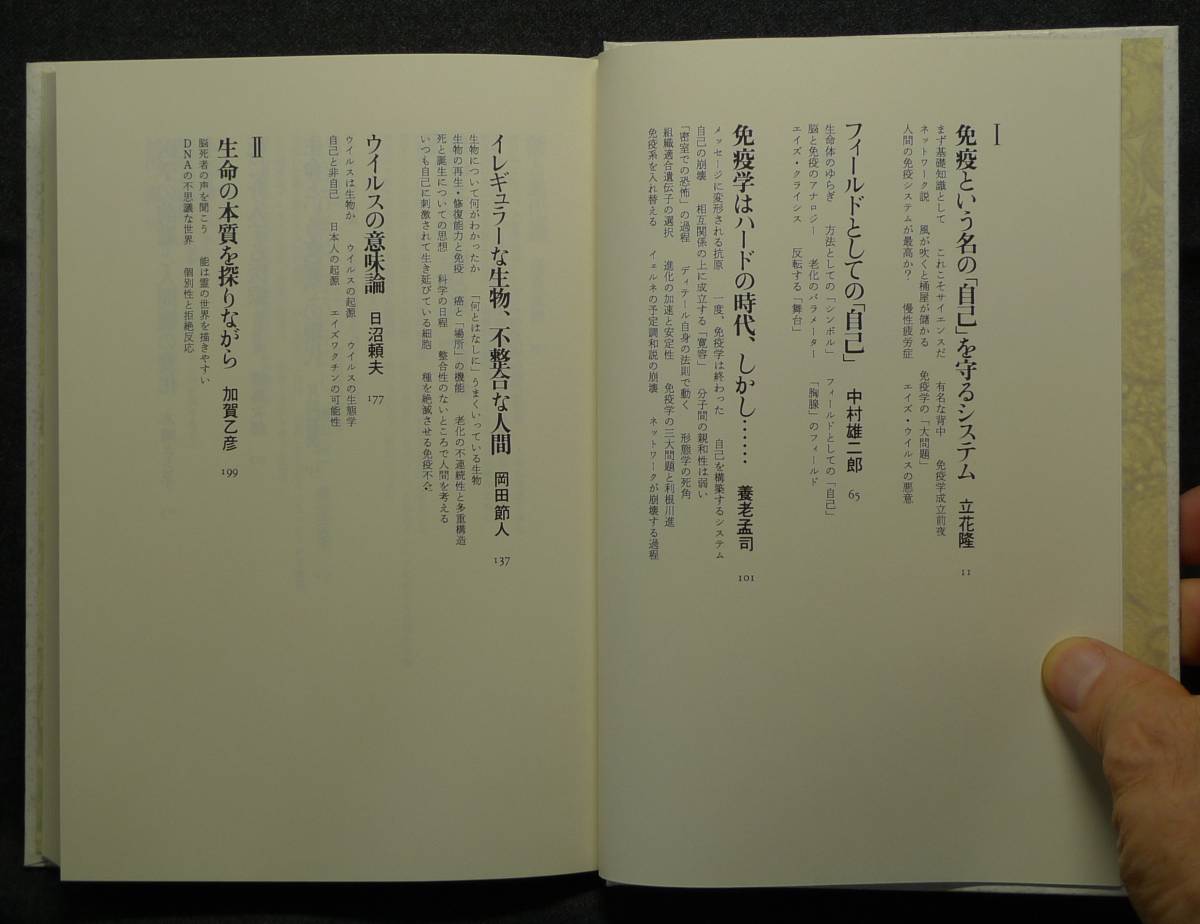 I
免疫という名の「自己」を守るシステム　立花隆　11
まず基礎知識として　これこそサイエンスだ　有名な背中　免疫学成立前夜
ネットワーク説　風が吹くと桶屋が儲かる　免疫学の「大問題」
人間の免疫システムが最高か?　慢性疲労症　エイズ・ウイルスの悪意
フィールドとしての「自己」　中村雄二郎　65
生命体のゆらぎ　方法としての「シンボル」　フィールドとしての「自己」
脳と免疫のアナロジー　老化のパラメーター　「胸腺」のフィールド
エイズ・クライシス　反転する「舞台」
免疫学はハードの時代、しかし……　養老孟司　101
メッセージに変形される抗原　一度、免疫学は終わった　自己を構築するシステム
自己の崩壊　相互関係の上に成立する「寛容」　分子間の親和性は弱い
「密室での恐怖」の過程　ディテール自身の法則で動く　形態学の死角
組織適合遺伝子の選択　進化の加速と安定性　免疫学の三大問題と利根川進
免疫系を入れ替える　イェルネの予定調和説の崩壊　ネットワークが崩壊する過程
イレギュラーな生物、不整合な人間　岡田節人　137
生物について何がわかったか　「何とはなしに」うまくいっている生物
生物の再生・修復能力と免疫　癌と「場所」の機能　老化の不連続性と多重構造
死と誕生についての思想　科学の日程　整合性のないところで人間を考える
いつも自己に刺激されて生き延びている細胞　種を絶滅させる免疫不全
ウイルスの意味論　日沼頼夫　177
ウイルスは生物か　ウイルスの起源　ウイルスの生態学
自己と非自己　日本人の起源　エイズワクチンの可能性
II
生命の本質を探りながら　加賀乙彦　199
脳死者の声を聞こう　能は霊の世界を描きやすい
DNAの不思議な世界　個別性と拒絶反応